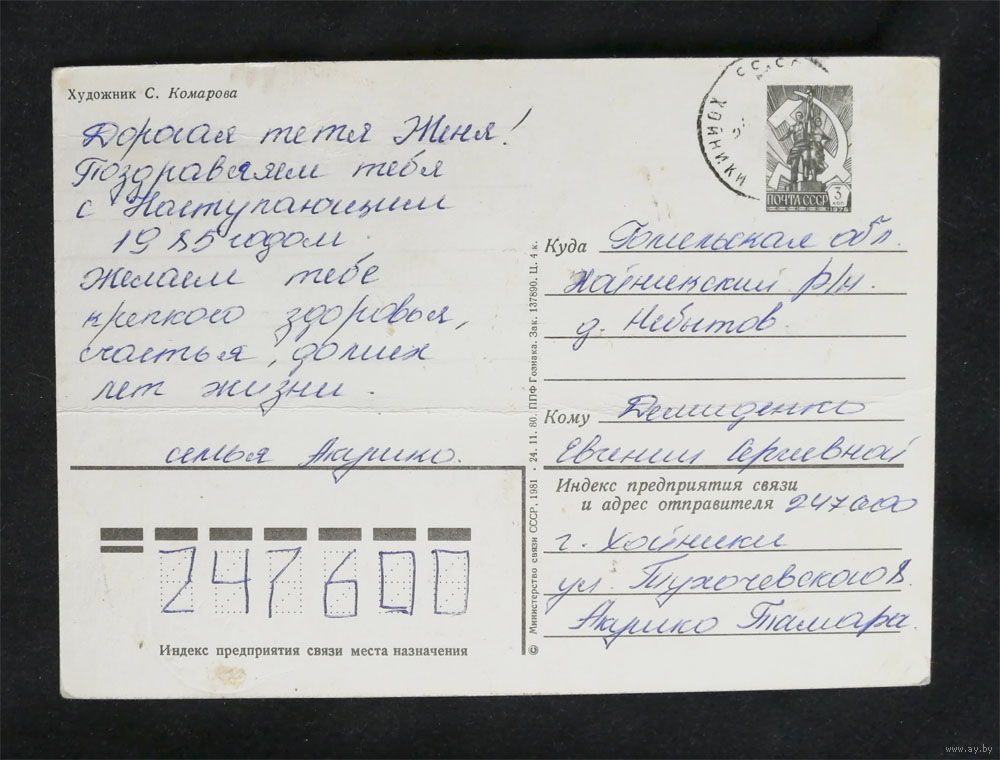 Художник С. Комарова
Дорогая тетя Женя!
Поздравляем тебя
с Наступающим
1985 годом.
Желаем тебе
крепкого здоровья,
счастья, долгих
лет жизни.
семья Акулико.
СССР
ХОЙНИКИ
ПОЧТА СССР
3
КОП
Куда Гомельская обл.
Хойникский р/н.
д. Небытов.
Кому Демиденко
Евгении Сергеевной
Индекс предприятия связи
и адрес отправителя 247600
г. Хойники
ул Тухачевского 8
Тамара.
247600
Индекс предприятия связи места назначения
© Министерство связи СССР, 1981 · 24. 11. 80. ППФ Гознака. Зак. 137890. Ц. 4 к.
www.ay.by